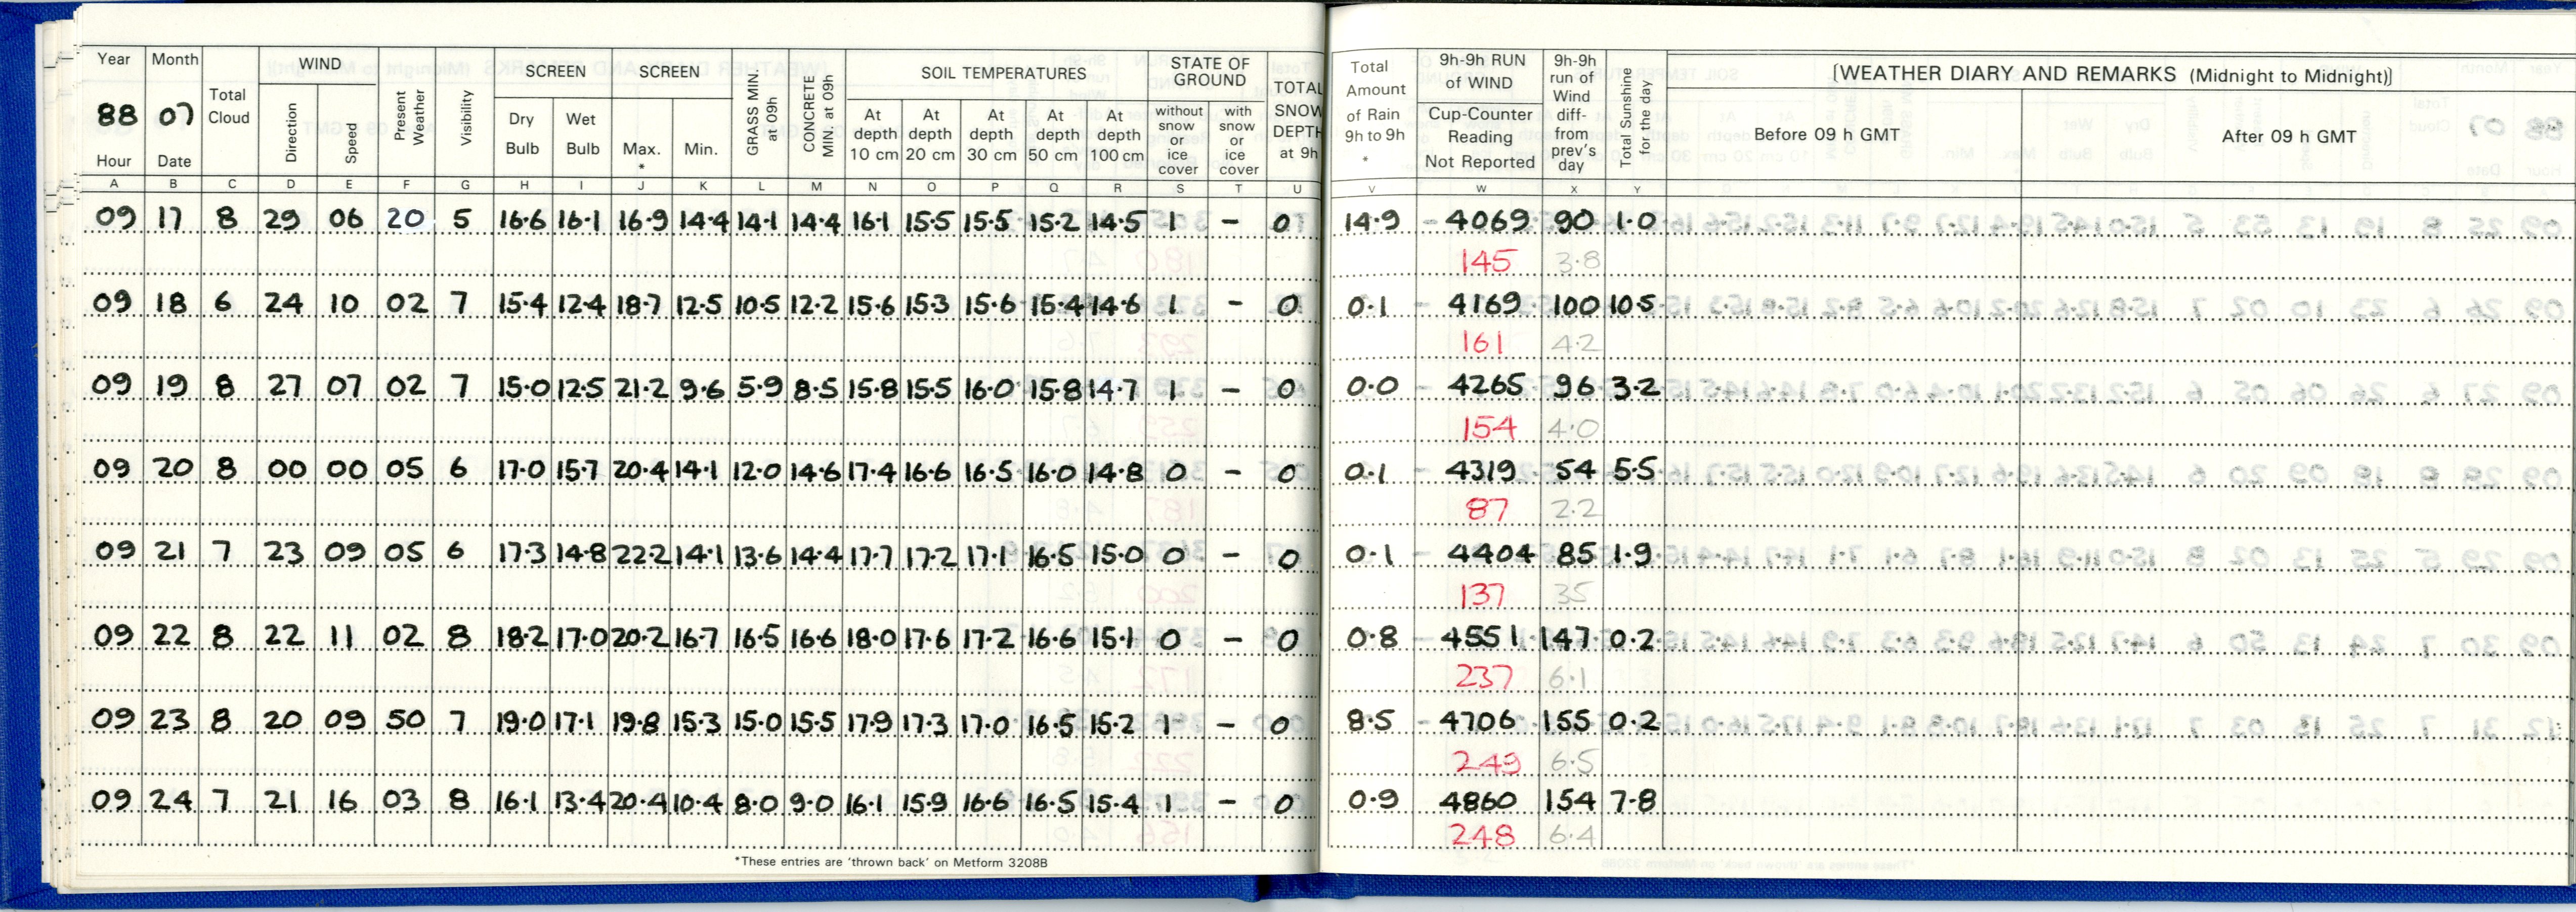 Year Month Total Cloud WIND Present Weather Visibility SCREEN SCREEN GRASS MIN. at 09h CONCRETE MIN. at 09h SOIL TEMPERATURES STATE OF GROUND TOTAL SNOW DEPTH at 9h Total Amount of Rain 9h to 9h * 9h-9h RUN of WIND 9h-9h run of Wind diff- from prev's day Total Sunshine for the day [WEATHER DIARY AND REMARKS (Midnight to Midnight)]
88 07 Direction Speed Dry Bulb Wet Bulb Max. * Min. At depth 10 cm At depth 20 cm At depth 30 cm At depth 50 cm At depth 100 cm without snow or ice cover with snow or ice cover Cup-Counter Reading Not Reported Before 09 h GMT After 09 h GMT
Hour Date
A B C D E F G H I J K L M N O P Q R S T U V W X Y
09 17 8 29 06 20 5 16.6 16.1 16.9 14.4 14.1 14.4 16.1 15.5 15.5 15.2 14.5 1 – 0 14.9 4069 90 1.0
145 3.8
09 18 6 24 10 02 7 15.4 12.4 18.7 12.5 10.5 12.2 15.6 15.3 15.6 15.4 14.6 1 – 0 0.1 4169 100 10.5
161 4.2
09 19 8 27 07 02 7 15.0 12.5 21.2 9.6 5.9 8.5 15.8 15.5 16.0 15.8 14.7 1 – 0 0.0 4265 96 3.2
154 4.0
09 20 8 00 00 05 6 17.0 15.7 20.4 14.1 12.0 14.6 17.4 16.6 16.5 16.0 14.8 0 – 0 0.1 4319 54 5.5
87 2.2
09 21 7 23 09 05 6 17.3 14.8 22.2 14.1 13.6 14.4 17.7 17.2 17.1 16.5 15.0 0 – 0 0.1 4404 85 1.9
137 35
09 22 8 22 11 02 8 18.2 17.0 20.2 16.7 16.5 16.6 18.0 17.6 17.2 16.6 15.1 0 – 0 0.8 4551 147 0.2
237 6.1
09 23 8 20 09 50 7 19.0 17.1 19.8 15.3 15.0 15.5 17.9 17.3 17.0 16.5 15.2 1 – 0 8.5 4706 155 0.2
249 6.5
09 24 7 21 16 03 8 16.1 13.4 20.4 10.4 8.0 9.0 16.1 15.9 16.6 16.5 15.4 1 – 0 0.9 4860 154 7.8
248 6.4
*These entries are 'thrown back' on Metform 3208B